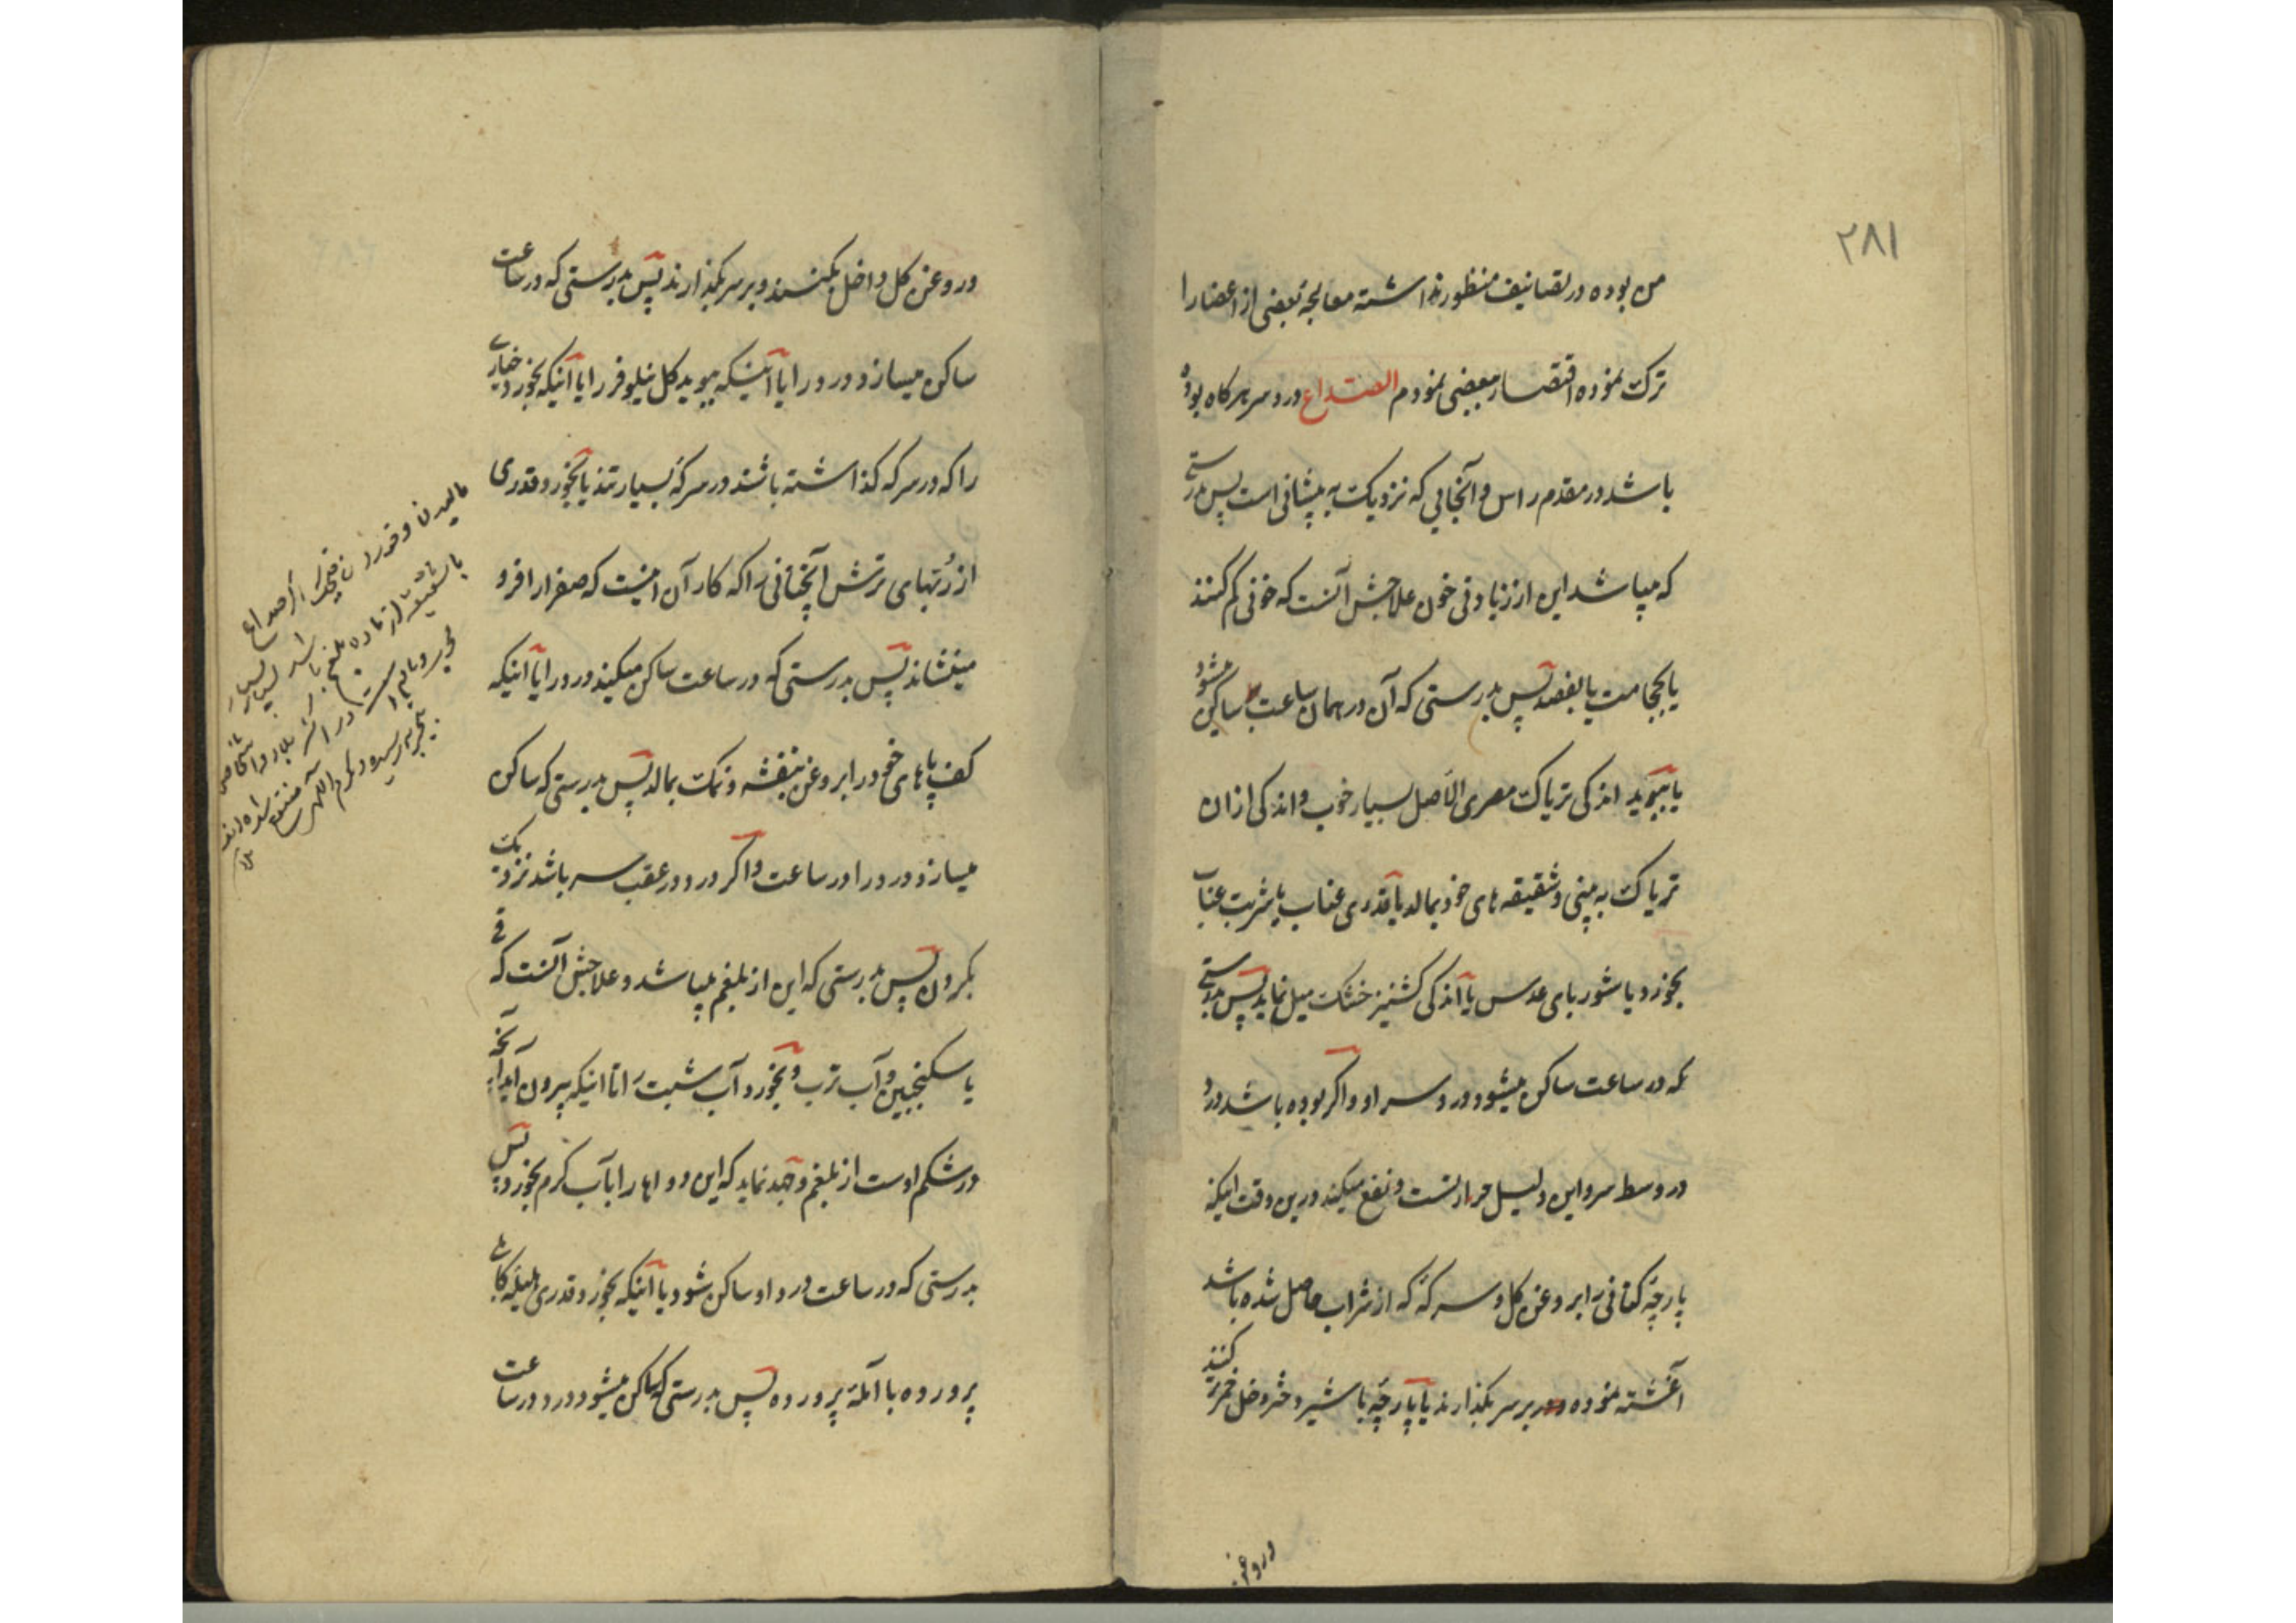 ۲۸۱
من بوده در تصانیف منظور نداشته معالجه بعضی از اعضا را
ترک نموده اقتصار ببعضی نمودم الصداع درد سر هر کاه بوده
باشد در مقدم راس و آنجایی که نزدیک به پیشانی است پس بدرستی
که میباشد این از زیادتی خون علاجش آنست که خونی کم کنند
یا بحجامت یا بفصد پس بدرستی که آن در همان ساعت ساکن میشود
یا ببوید اندکی تریاک مصری الاصل بسیار خوب و اندکی از ان
تریاک به بینی و شقیقه های خود بمالد یا قدری عناب یا شربت عناب
بخورد یا شوربای عدس یا اندکی کشنیز خشک میل نماید پس بدرستی
که در ساعت ساکن میشود درد سر او و اکر بوده باشد درد
در وسط سر و این دلیل حرارتست و نفع میکند درین وقت اینکه
پارچه کتانی را بروغن کل و سرکه که از شراب حاصل شده باشد
آغشته نموده بر سر بکذارند یا پارچه با شیر دختر و خل خمر تر کنند
و روغن
و روغن کل داخل بکنند و بر سر بکذارند پس بدرستی که در ساعت
ساکن میسازد درد را یا آنیکه ببوید کل نیلوفر را یا آنیکه بخورد خیاری
را که در سرکه کذاشته باشند در سرکه بسیار تند یا بخورد قدری
از ربهای ترش آنچنانی را که کار آن اینست که صفرا را فرو
مینشاند پس بدرستی که در ساعت ساکن میکند درد را یا آنیکه
کف پاهای خود را بروغن بنفشه و نمک بمالد پس بدرستی که ساکن
میسازد درد را در ساعت و اکر درد در عقب سر باشد نزدیک
بکردن پس بدرستی که این از بلغم میباشد و علاجش آنست که قی
با سکنجبین و آب ترب و بخورد آب شبت را تا اینکه بیرون آید آنچه
در شکم اوست از بلغم و جهد نماید که این دواها را با آب کرم بخورد پس
بدرستی که در ساعت درد او ساکن شود یا آنیکه بخورد قدری هلیله کابلی
پرورده با آمله پرورده پس بدرستی که ساکن میشود درد در ساعت